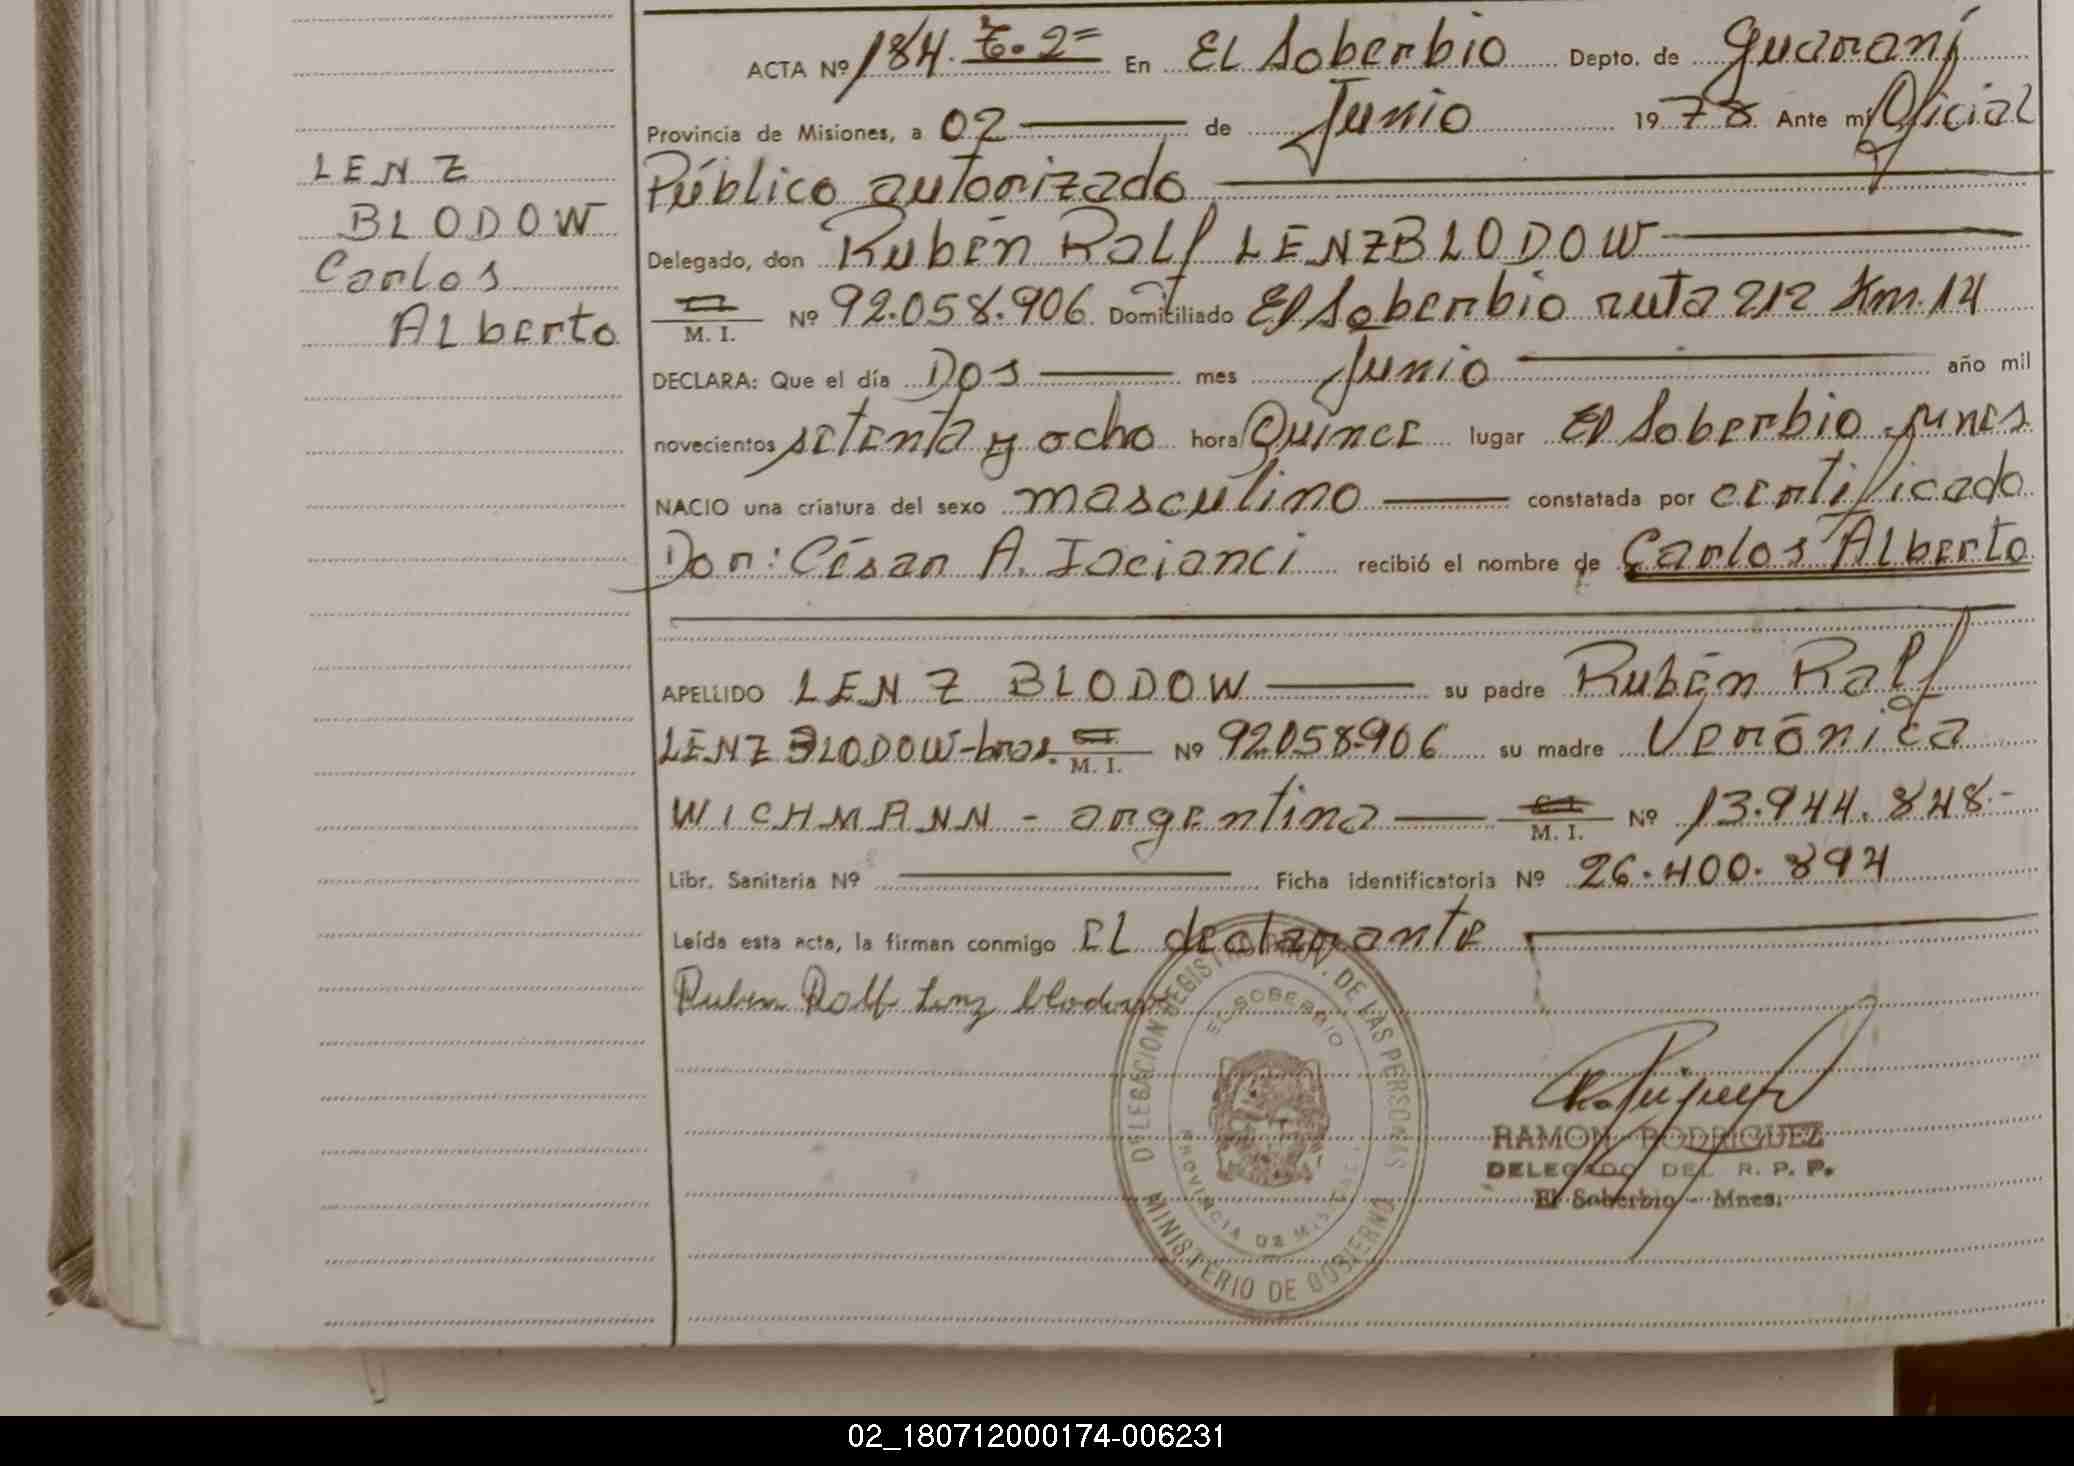 ACTA Nº 184. T. 2º En El Soberbio Depto. de Guaraní
Provincia de Misiones, a 02 de Junio 1978 Ante mi Oficial
Público autorizado
LENZ
BLODOW
Carlos
Alberto
Delegado, don Rubén Ralf LENZ BLODOW
M. I. Nº 92.058.906 Domiciliado El Soberbio ruta 212 Km. 14
DECLARA: Que el día Dos mes Junio año mil
novecientos setenta y ocho hora Quince lugar El Soberbio
NACIO una criatura del sexo masculino constatada por certificado
Don: César A. Iacianci recibió el nombre de Carlos Alberto
APELLIDO LENZ BLODOW su padre Rubén Ralf
LENZ BLODOW-bras. C. I. M. I. Nº 92.058.906 su madre Verónica
WICHMANN - argentina C. I. M. I. Nº 13.944.848.-
Libr. Sanitaria Nº Ficha identificatoria Nº 26.400.894
Leída esta acta, la firman conmigo El declarante
Ruben Ralf Lenz blodow
DELEGACION REGISTRO PROV. DE LAS PERSONAS
EL SOBERBIO
PROVINCIA DE MISIONES
MINISTERIO DE GOBIERNO
RAMON RODRIGUEZ
DELEGADO DEL R. P. P.
El Soberbio - Mnes.
02_180712000174-006231